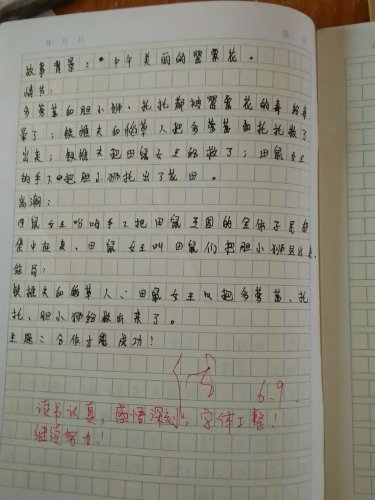 年 月 日
故事背景：中午美丽的罂粟花。
情节：
多萝茜和胆小狮、托托都被罂粟花的毒给毒
晕了；铁樵夫和稻草人把多萝茜和托托救了
出来；铁樵夫把田鼠女王给救了；田鼠女王
的手下把胆小狮托出了花田。
高潮：
田鼠女王吩咐手下把田鼠王国的全体子民都
集中起来，田鼠女王叫田鼠们把胆小狮运出来。
结局：
铁樵夫和稻草人、田鼠女王又把多萝茜、托
托、胆小狮给救出来了。
主题：合作才能成功！
6.9.
读书认真，感悟深刻，字体工整！
继续努力！